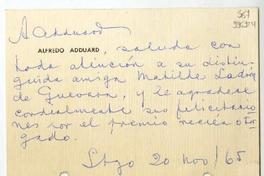 A Adduard
ALFREDO ADDUARD, saluda con
toda atención a su distin-
guida amiga Matilde Ladrón
de Guevara, y le agradece
cordialmente sus felicitacio
nes por el premio recién otor
gado.
Stgo 20 nov/65